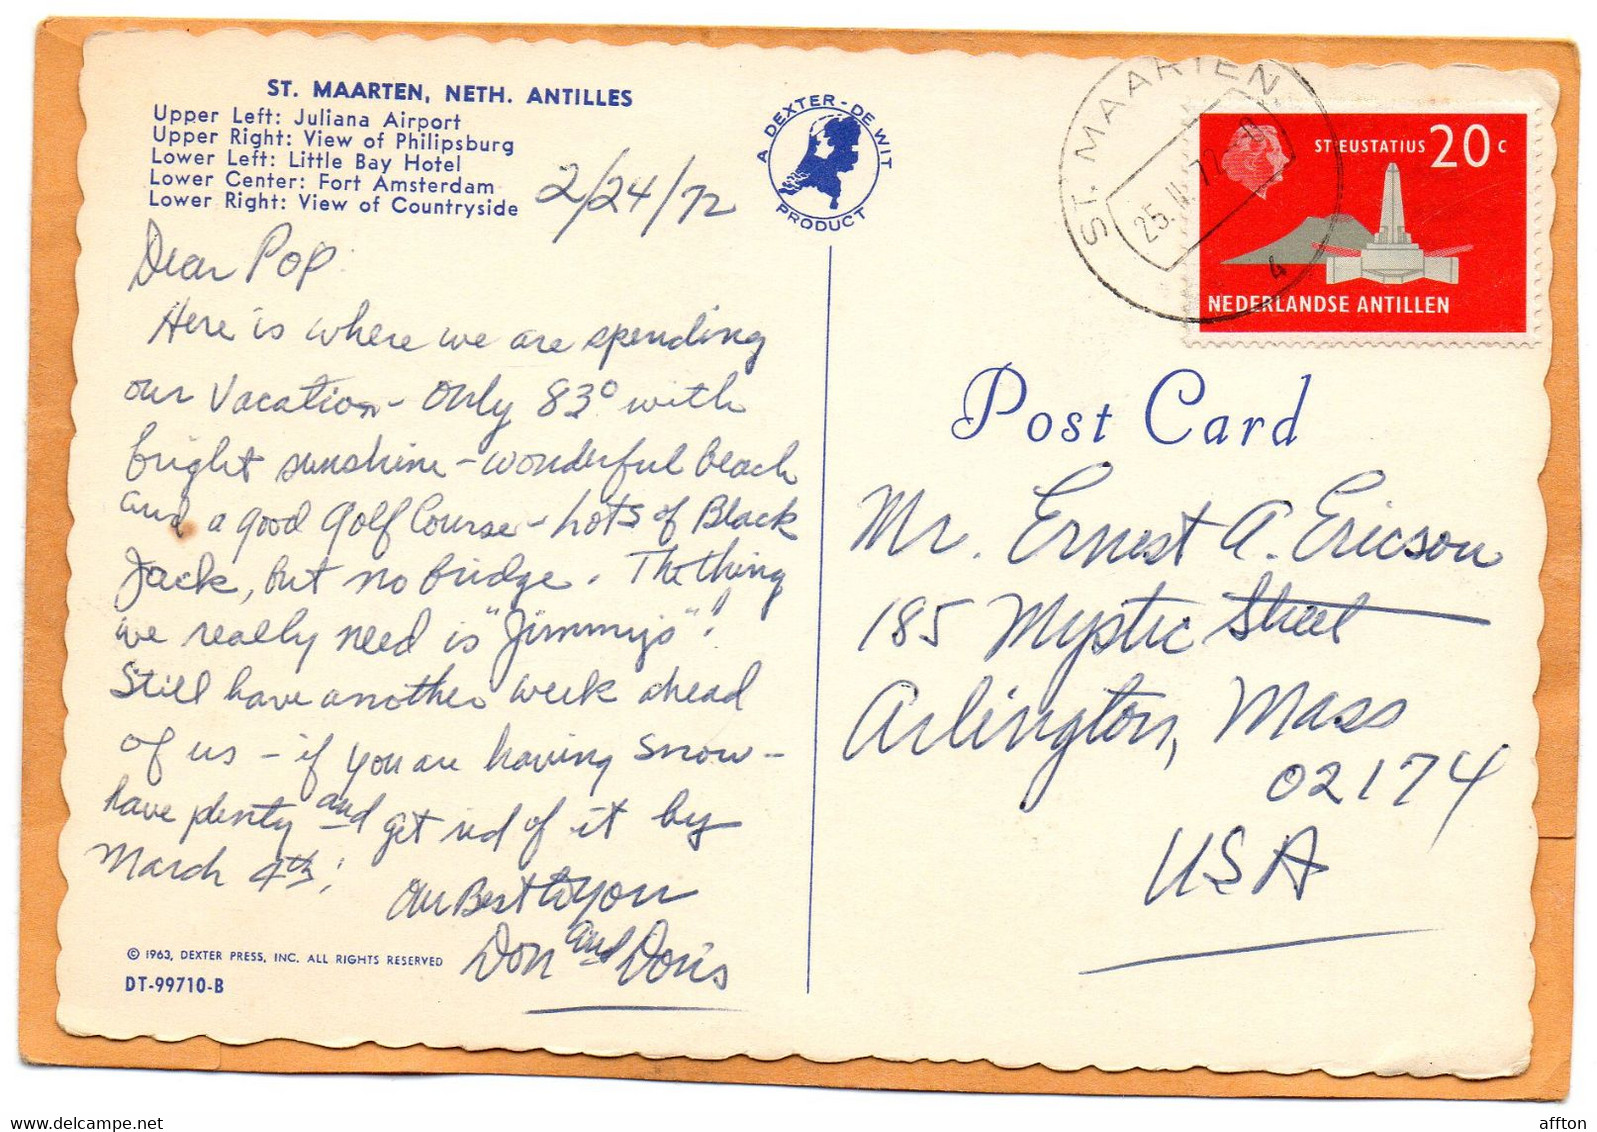 ST. MAARTEN, NETH. ANTILLES
Upper Left: Juliana Airport
Upper Right: View of Philipsburg
Lower Left: Little Bay Hotel
Lower Center: Fort Amsterdam
Lower Right: View of Countryside
2/24/72
Dear Pop:
Here is where we are spending
our Vacation - Only 83° with
bright sunshine - wonderful beach
and a good Golf Course - Lots of Black
Jack, but no bridge. The thing
we really need is "Jimmys"!
Still have another week ahead
of us - if you are having snow -
have plenty and get rid of it by
March 4th;
Our Best to you
Don and Doris
© 1963, DEXTER PRESS, INC. ALL RIGHTS RESERVED
DT-99710-B
A DEXTER-DE WIT
PRODUCT
ST. MAARTEN
25.II.72
4
ST EUSTATIUS 20 c
NEDERLANDSE ANTILLEN
Post Card
Mr. Ernest A. Ericson
185 Mystic Street
Arlington, Mass
02174
USA
affton